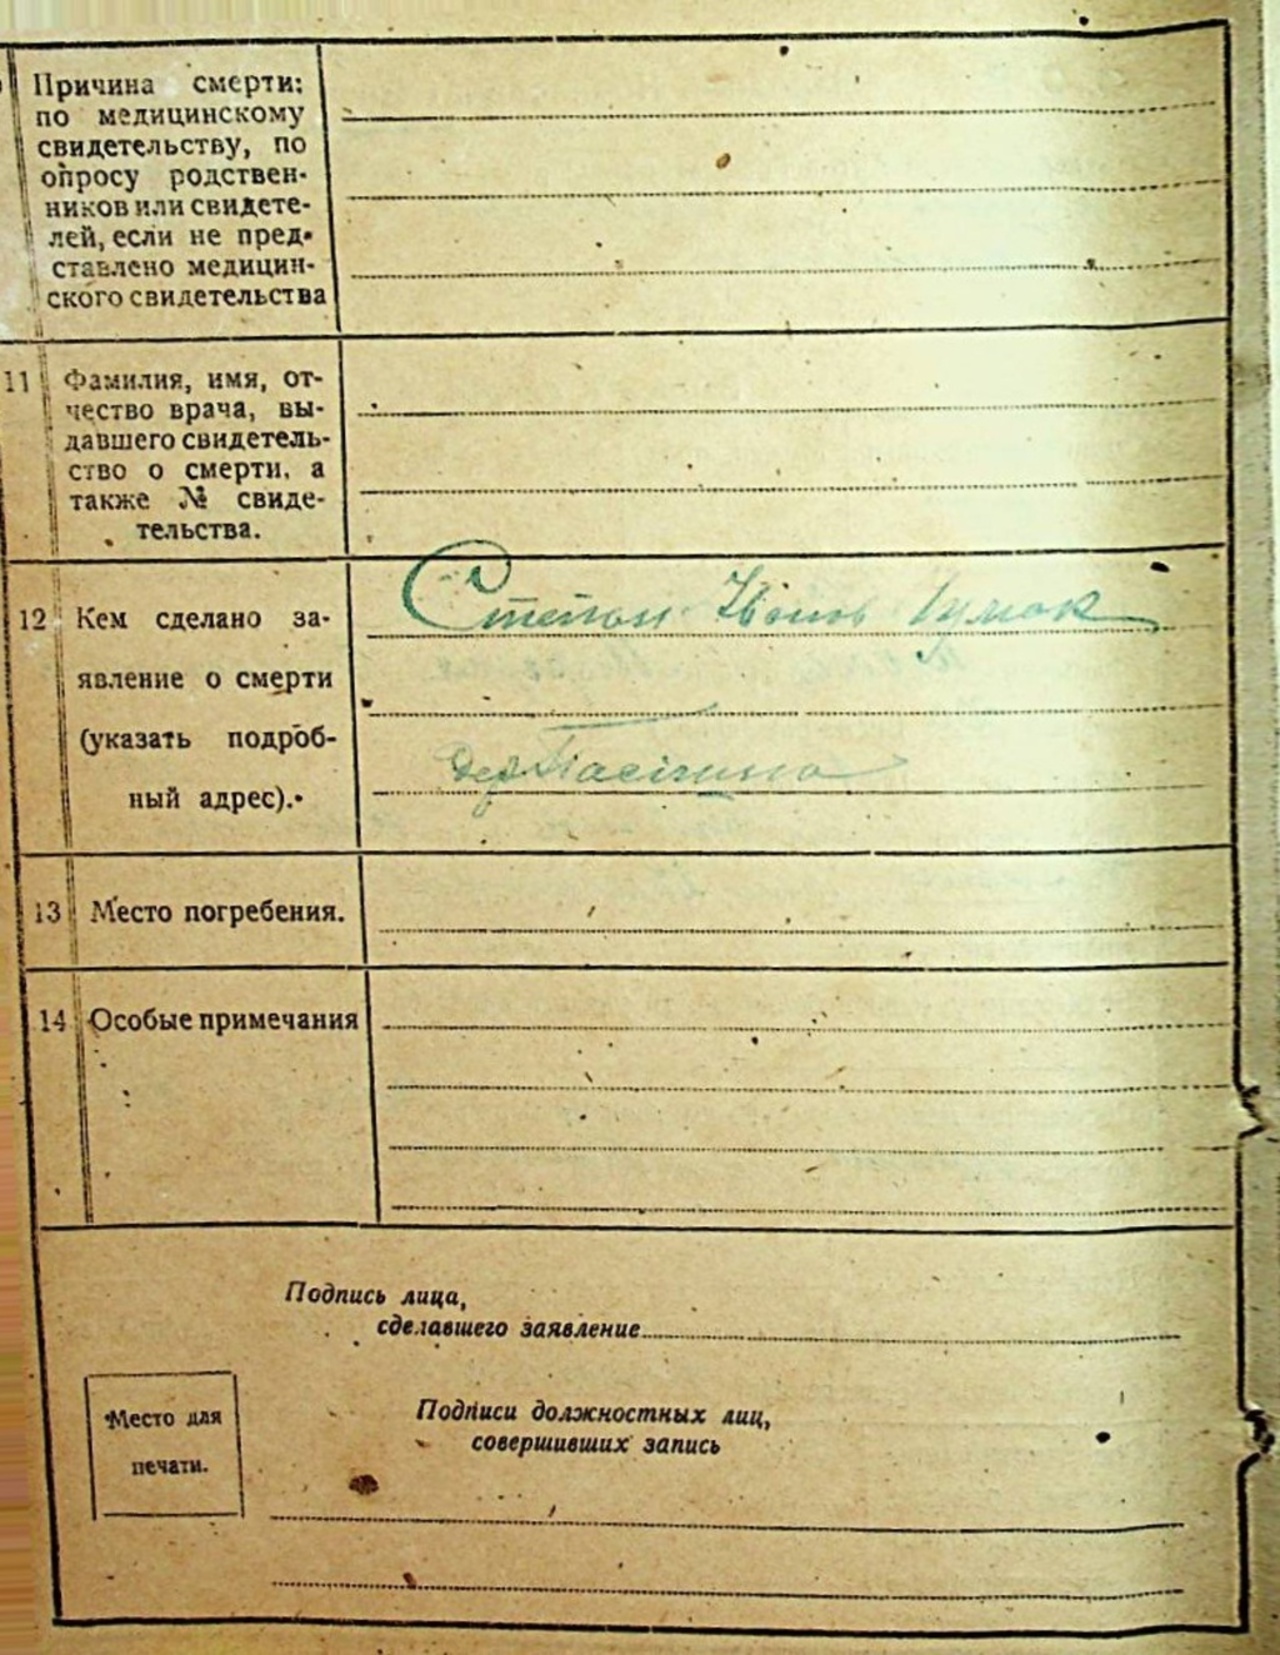 Причина смерти:
по медицинскому
свидетельству, по
опросу родствен-
ников или свидете-
лей, если не пред-
ставлено медицин-
ского свидетельства
11 Фамилия, имя, от-
чество врача, вы-
давшего свидетель-
ство о смерти, а
также № свиде-
тельства.
12 Кем сделано за-
явление о смерти
(указать подроб-
ный адрес).
Степан
дер.
13 Место погребения.
14 Особые примечания
Подпись лица,
сделавшего заявление
Место для
печати.
Подписи должностных лиц,
совершивших запись